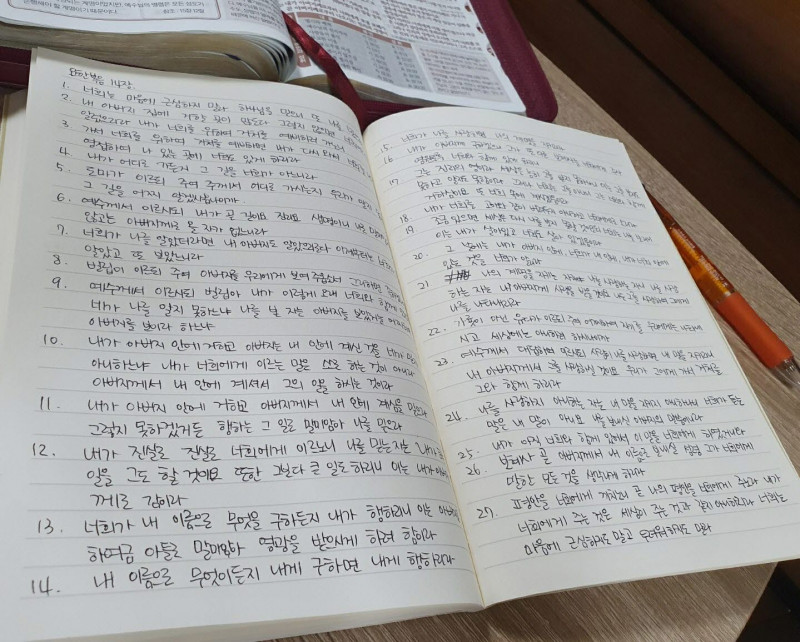 요한복음 14장.
1. 너희는 마음에 근심하지 말라 하나님을 믿으니 또 나를
2. 내 아버지 집에 거할 곳이 많도다 그렇지 않으면
일렀으리라 내가 너희를 위하여 거처를 예비하러
3. 가서 너희를 위하여 거처를 예비하면 내가 다시 와서
영접하여 나 있는 곳에 너희도 있게 하리라
4. 내가 어디로 가는지 그 길을 너희가 아느니라
5. 도마가 이르되 주여 주께서 어디로 가시는지 우리가 알지
그 길을 어찌 알겠사옵나이까
6. 예수께서 이르시되 내가 곧 길이요 진리요 생명이니 나로
않고는 아버지께로 올 자가 없느니라
7. 너희가 나를 알았더라면 내 아버지도 알았으리로다 이제부터는
알았고 또 보았느니라
8. 빌립이 이르되 주여 아버지를 우리에게 보여 주옵소서 그리하면
9. 예수께서 이르시되 빌립아 내가 이렇게 오래 너희와 함께
네가 나를 알지 못하느냐 나를 본 자는 아버지를 보았거늘
아버지를 보이라 하느냐
10. 내가 아버지 안에 거하고 아버지는 내 안에 계신 것을 네가 믿지
아니하느냐 내가 너희에게 이르는 말은 스스로 하는 것이 아니라
아버지께서 내 안에 계셔서 그의 일을 하시는 것이라
11. 내가 아버지 안에 거하고 아버지께서 내 안에 계심을 믿으라
그렇지 못하겠거든 행하는 그 일로 말미암아 나를 믿으라
12. 내가 진실로 진실로 너희에게 이르노니 나를 믿는 자는 내가
일을 그도 할 것이요 또한 그보다 큰 일도 하리니 이는 내가 아버지
께로 감이라
13. 너희가 내 이름으로 무엇을 구하든지 내가 행하리니 이는 아버지
하여금 아들로 말미암아 영광을 받으시게 하려 함이라
14. 내 이름으로 무엇이든지 내게 구하면 내가 행하리라
15. 너희가 나를 사랑하면 나의 계명을 지키리라
16. 내가 아버지께 구하겠으니 그가 또 다른
너희와 함께 있게
17. 그는 진리의 영이라 세상은 능히 그를 받지 못하나니 이는 그를
못하고 알지도 못함이라 그러나 너희는 그를 아나니 그는 너희와 함께
거하심이요 또 너희 속에 계시겠음이라
18. 내가 너희를 고아와 같이 버려두지 아니하고 너희에게로 오리라
19. 조금 있으면 세상은 다시 나를 보지 못할 것이로되 너희는 나를 보리니
이는 내가 살아있고 너희도 살아 있겠음이라
20. 그 날에는 내가 아버지 안에, 너희가 내 안에, 내가 너희 안에
있는 것을 너희가 알리라
21. 나의 계명을 지키는 자라야 나를 사랑하는 자니 나를 사랑
하는 자는 내 아버지께 사랑을 받을 것이요 나도 그를 사랑하여 그에게
나를 나타내리라
22. 가룟인 아닌 유다가 이르되 주여 어찌하여 자기를 우리에게는 나타내
시고 세상에는 아니하려 하시나이까
23. 예수께서 대답하여 이르시되 사람이 나를 사랑하면 내 말을 지키리니
내 아버지께서 그를 사랑하실 것이요 우리가 그에게 가서 거처를
그와 함께 하리라
24. 나를 사랑하지 아니하는 자는 내 말을 지키지 아니하나니 너희가 듣는
말은 내 말이 아니요 나를 보내신 아버지의 말씀이니라
25. 내가 아직 너희와 함께 있어서 이 말을 너희에게 하였거니와
26. 보혜사 곧 아버지께서 내 이름으로 보내실 성령 그가 너희에게
말한 모든 것을 생각나게 하리라
27. 평안을 너희에게 끼치노니 곧 나의 평안을 너희에게 주노라 내가
너희에게 주는 것은 세상이 주는 것과 같지 아니하니라 너희는
마음에 근심하지도 말고 두려워하지도 말라